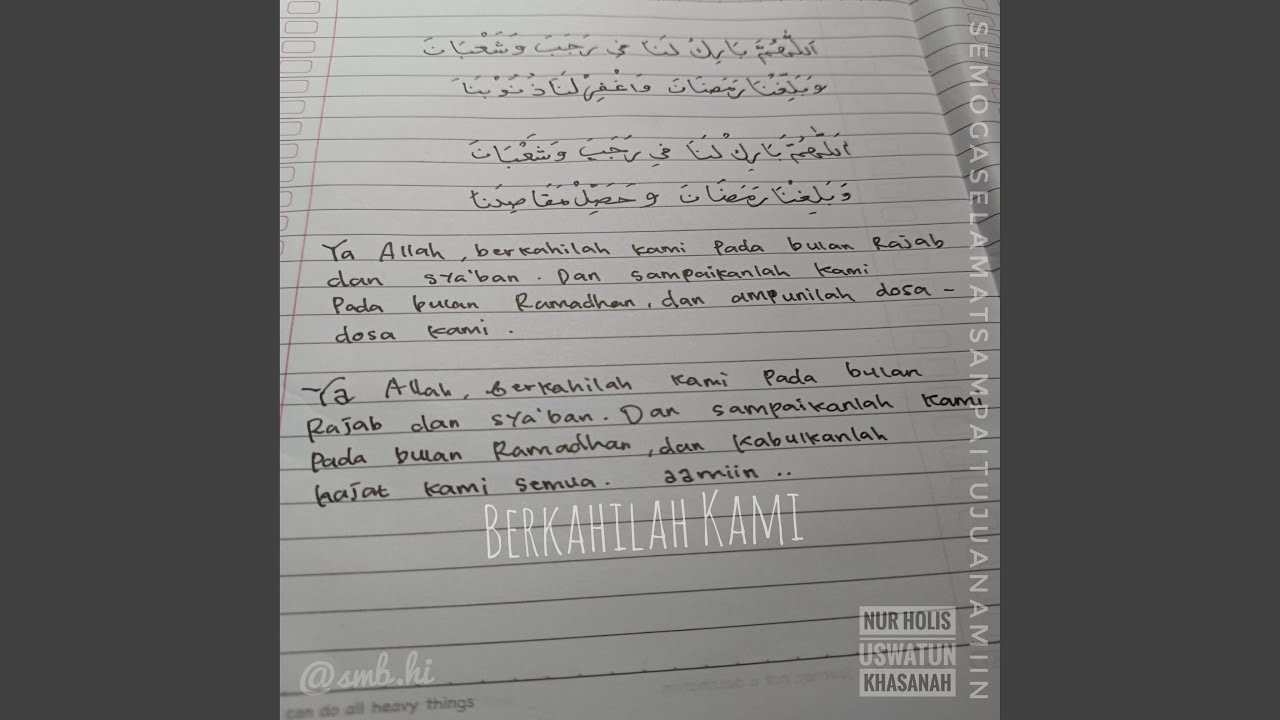 اَللّٰهُمَّ بَارِكْ لَنَا فِي رَجَبَ وَشَعْبَانَ
وَبَلِّغْنَا رَمَضَانَ وَاغْفِرْ لَنَا ذُنُوْبَنَا
اَللّٰهُمَّ بَارِكْ لَنَا فِي رَجَبَ وَشَعْبَانَ
وَبَلِّغْنَا رَمَضَانَ وَحَصِّلْ مَقَاصِدَنَا
Ya Allah, berkahilah kami pada bulan Rajab
dan sya'ban. Dan sampaikanlah kami
Pada bulan Ramadhan, dan ampunilah dosa-
dosa kami.
Ya Allah, Berkahilah kami pada bulan
Rajab dan sya'ban. Dan sampaikanlah kami
pada bulan Ramadhan, dan kabulkanlah
hajat kami semua. aamiin ..
BERKAHILAH KAMI
SEMOGASELAMATSAMPAITUJUANAMIIN
NUR HOLIS
USWATUN
KHASANAH
@smb.hi
can do all heavy things